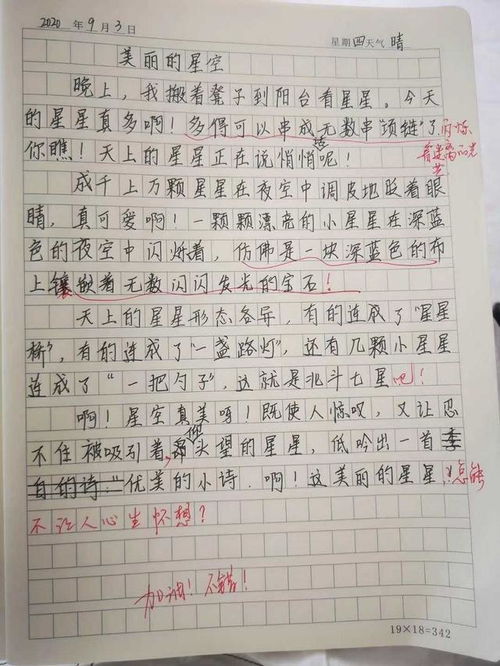 2020 年 9 月 3 日 星期 四 天气 晴
美丽的星空
晚上，我搬着凳子到阳台看星星。今天
的星星真多啊！多得可以串成无数串项链了
你瞧！天上的星星正在说悄悄话呢！
成千上万颗星星在夜空中调皮地眨着眼
睛，真可爱啊！一颗颗漂亮的小星星在深蓝
色的夜空中闪烁着，仿佛是一块深蓝色的布
上镶嵌着无数闪闪发光的宝石！
天上的星星形态各异，有的连成了"星星
桥"，有的连成了"一盏路灯"，还有几颗小星星
连成了"一把勺子"，这就是北斗七星吧！
啊！星空真美呀！既使人惊叹，又让忍
不住被吸引着，仰头望的星星，低吟出一首李
白的诗："优美的小诗。啊！这美丽的星星，怎能
不让人心生怀想？
加油！不错！
19×18=342